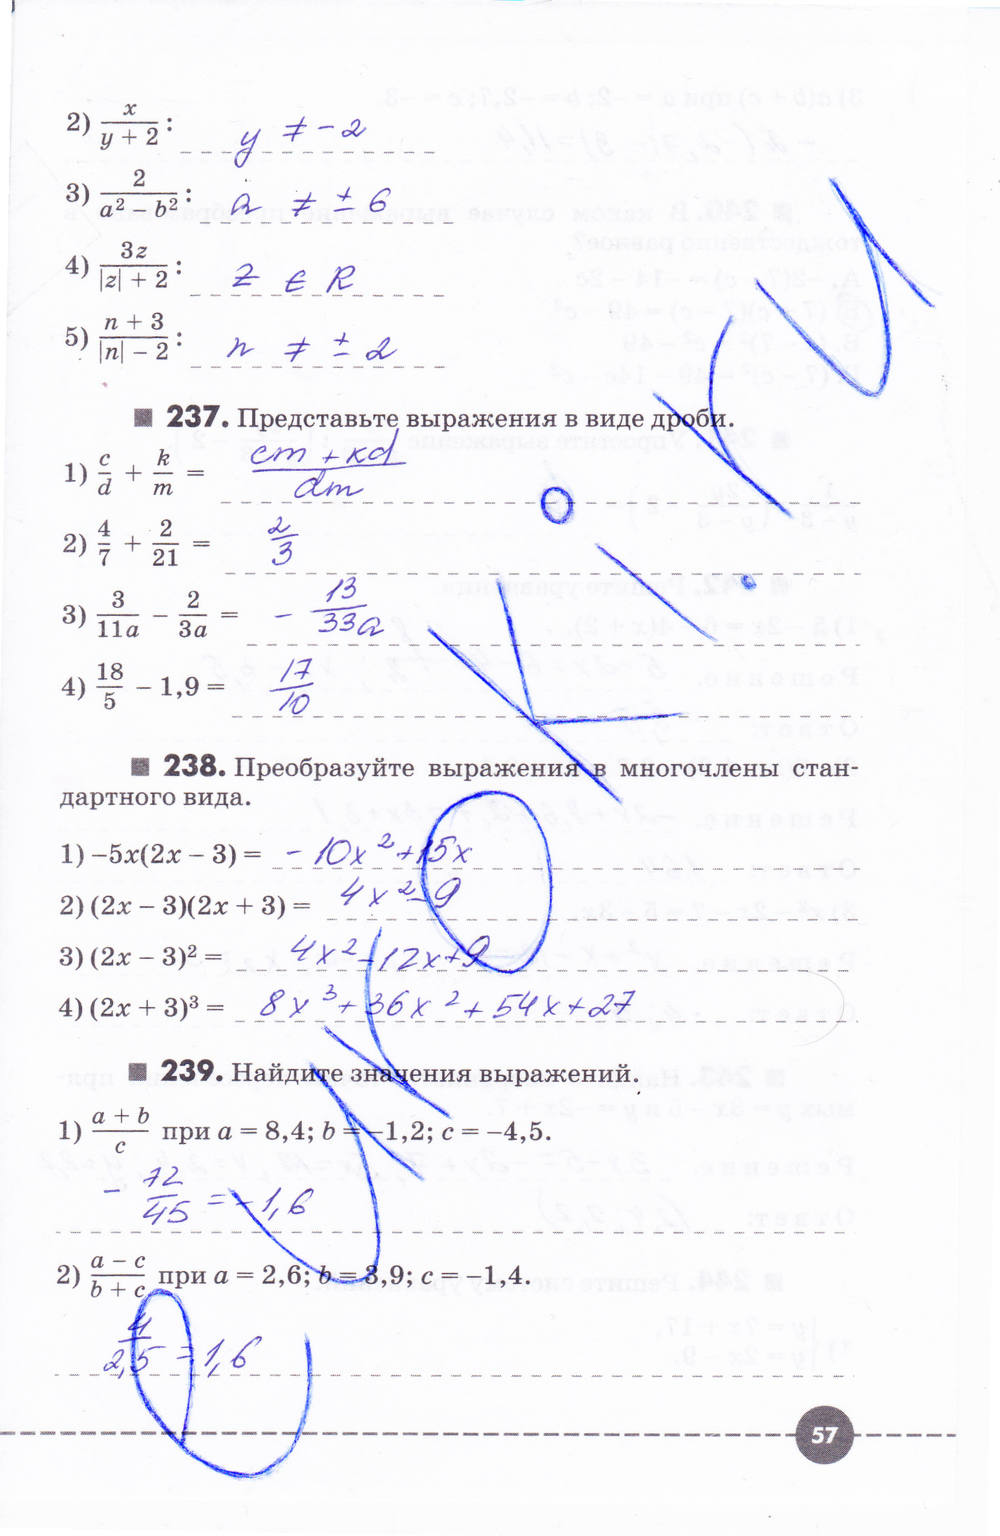 2) x/(y + 2): y ≠ -2
3) 2/(a² - b²): a ≠ ± 6
4) 3z/(|z| + 2): z ∈ R
5) (n + 3)/(|n| - 2): n ≠ ± 2
237. Представьте выражения в виде дроби.
1) c/d + k/m = (cm + kd)/dm
2) 4/7 + 2/21 = 2/3
3) 3/11a - 2/3a = - 13/33a
4) 18/5 - 1,9 = 17/10
238. Преобразуйте выражения в многочлены стан-
дартного вида.
1) -5x(2x - 3) = - 10x² + 15x
2) (2x - 3)(2x + 3) = 4x² - 9
3) (2x - 3)² = 4x² - 12x + 9
4) (2x + 3)³ = 8x³ + 36x² + 54x + 27
239. Найдите значения выражений.
1) (a + b)/c при a = 8,4; b = -1,2; c = -4,5.
- 72/45 = - 1,6
2) (a - c)/(b + c) при a = 2,6; b = 3,9; c = -1,4.
4/2,5 = 1,6
57